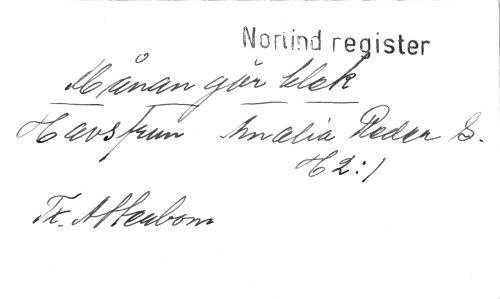 Norlind register
Månan går blek
Havsfrun Amalia Redec S.
H 2:1
Tx. Atterbom